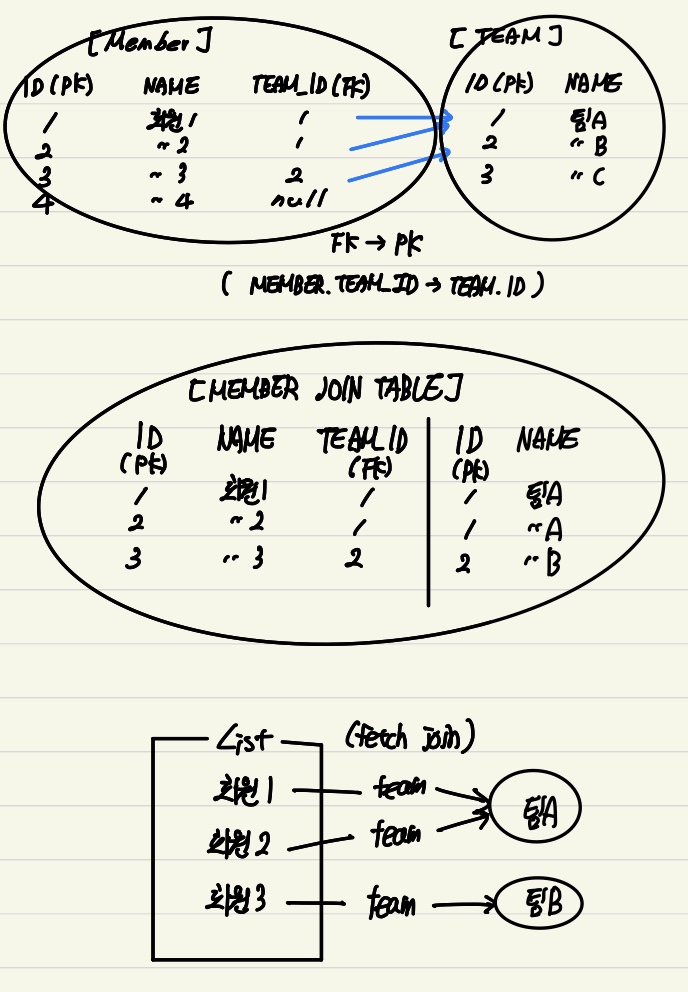 [Member]
ID (PK) NAME TEAM_ID (FK)
1 회원1 1
2 〃 2 1
3 〃 3 2
4 〃 4 null
[TEAM]
ID (PK) NAME
1 팀A
2 〃 B
3 〃 C
FK → PK
( MEMBER.TEAM_ID → TEAM.ID )
[MEMBER JOIN TABLE]
ID NAME TEAM_ID ID NAME
(PK) (FK) (PK)
1 회원1 1 1 팀A
2 〃 2 1 1 〃 A
3 〃 3 2 2 〃 B
List (fetch join)
회원1 team 팀A
회원2 team
회원3 team 팀B